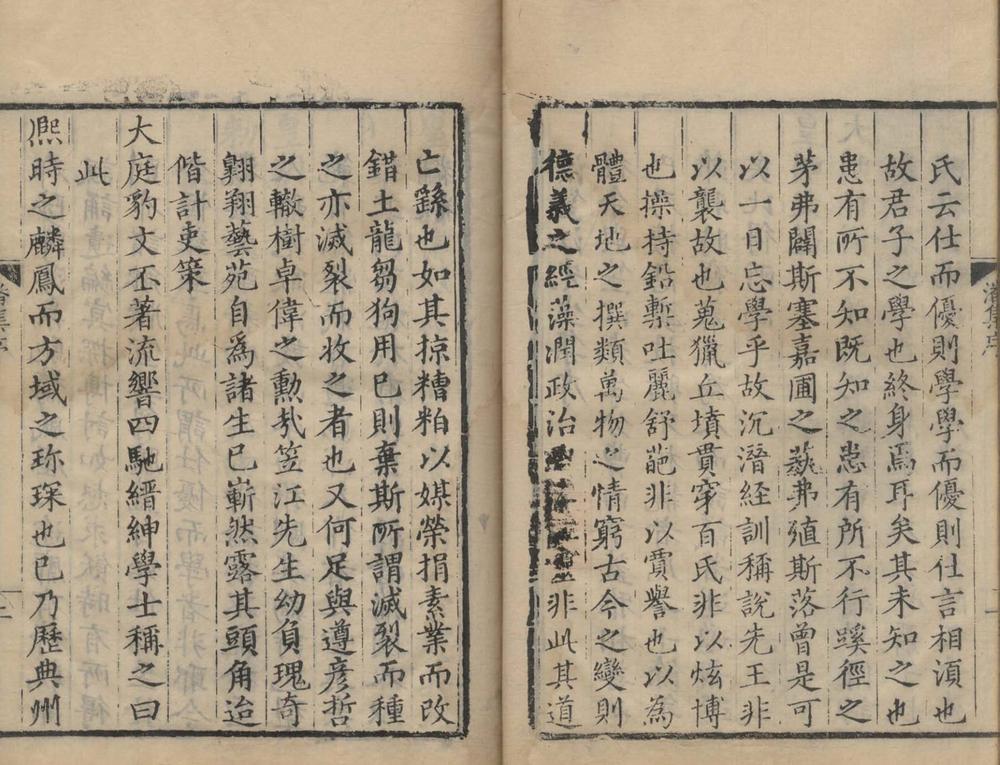 氏云仕而優則學學而優則仕言相湏也
故君子之學也終身焉耳矣其未知之也
患有所不知既知之患有所不行蹊徑之
茅弗闢斯塞嘉圃之蓺弗殖斯落曾是可
以一日忘學乎故沉潛経訓稱說先王非
以襲故也蒐獵丘墳貫穿百氏非以炫博
也操持鉛槧吐麗舒葩非以賈譽也以為
體天地之撰類萬物之情窮古今之變則
德義之經藻潤政治非此其道
亡繇也如其掠糟粕以媒榮捐素業而改
錯土龍芻狗用已則棄斯所謂滅裂而種
之亦滅裂而收之者也又何足與遵彥哲
之轍樹卓偉之勳㢤笠江先生幼負瑰奇
翺翔藝苑自為諸生已嶄然露其頭角迨
偕計吏策
大庭豹文丕著流響四馳縉紳學士稱之曰
此
熈時之麟鳳而方域之珎琛也已乃歷典州
潘集序
二